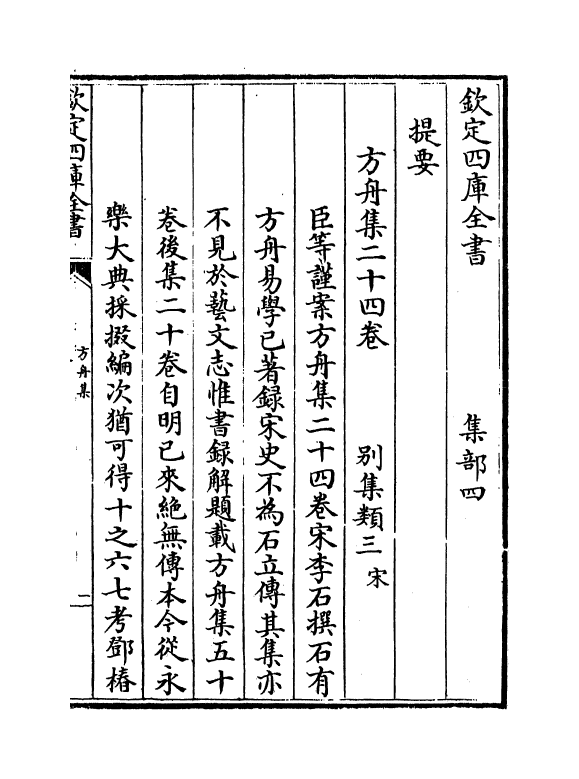 欽定四庫全書　集部四
提要
方舟集二十四卷　別集類三宋
臣等謹案方舟集二十四卷宋李石撰石有
方舟易學已著録宋史不為石立傳其集亦
不見於藝文志惟書録解題載方舟集五十
卷後集二十卷自明已來絶無傳本今從永
樂大典採掇編次猶可得十之六七考鄧椿
欽定四庫全書
方舟集
二